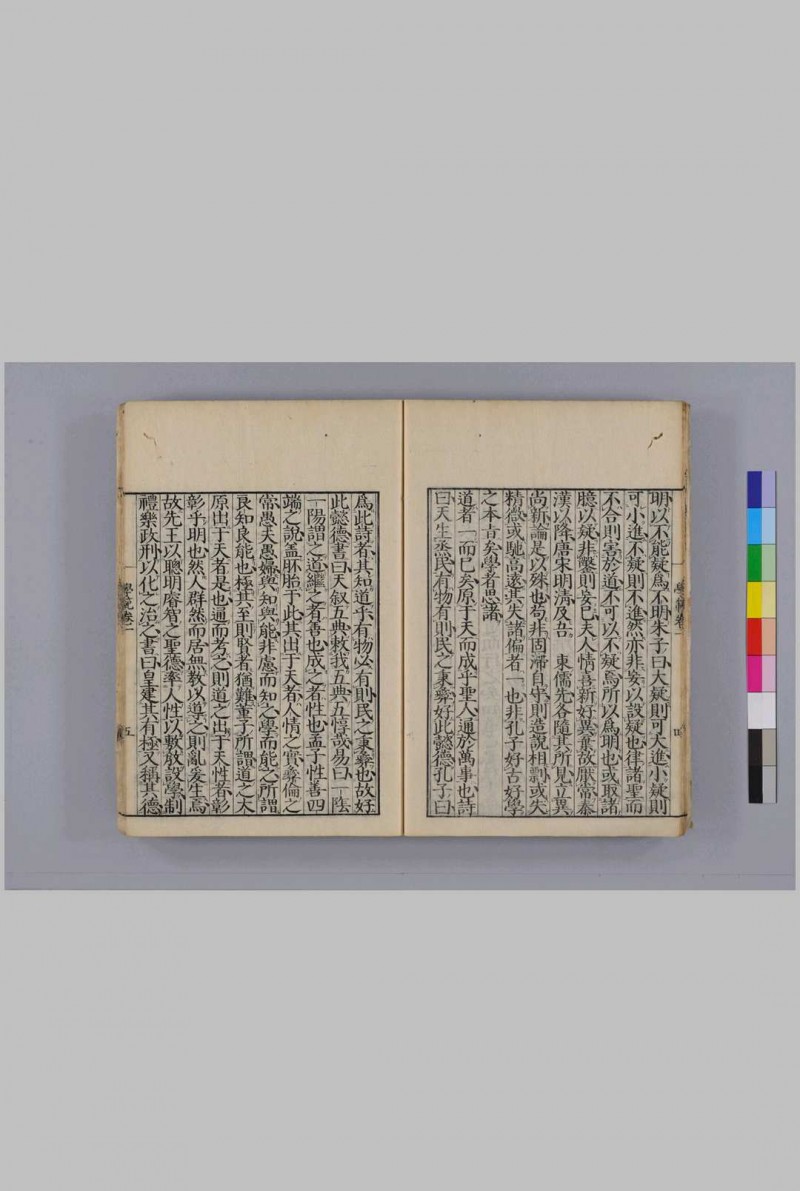 明以不能疑爲不明朱子曰大疑則可大進小疑則
可小進不疑則不進然亦非妄以設疑也律諸聖而
不合則害於道不可以不疑焉所以爲明也或取諸
臆以疑非鑿則妄已夫人情喜新好異葉故厭常秦
漢以降唐宋明淸及吾 東儒先各隨其所見立異
尚新論是以殊也苟非固滯自守則造說相剽或失
精微或馳高遠其失諸偏者一也非孔子好古好學
之本旨矣學者思諸
道者一而已矣原于天而成乎聖人通於萬事也詩
曰天生烝民有物有則民之秉彜好此懿德孔子曰
爲此詩者其知道乎有物必有則民之秉彜也故好
此懿德書曰天叙五典敕我五典五惇哉易曰一陰
一陽謂之道繼之者善也成之者性也孟子性善四
端之說盖胚胎于此其出于天者人情之實彜倫之
常愚夫愚婦與知與能非慮而知之學而能之所謂
良知良能也極其至則賢者猶難董子所謂道之大
原出于天者是也通而考之則道之出于天性者彰
彰乎明也然人群然而居無教以導之則亂爰生焉
故先王以聰明睿智之聖德率人性以敷敎設學制
禮樂政刑以化之治之書曰皇建其有極又稱其德
卷一
四
卷一
五